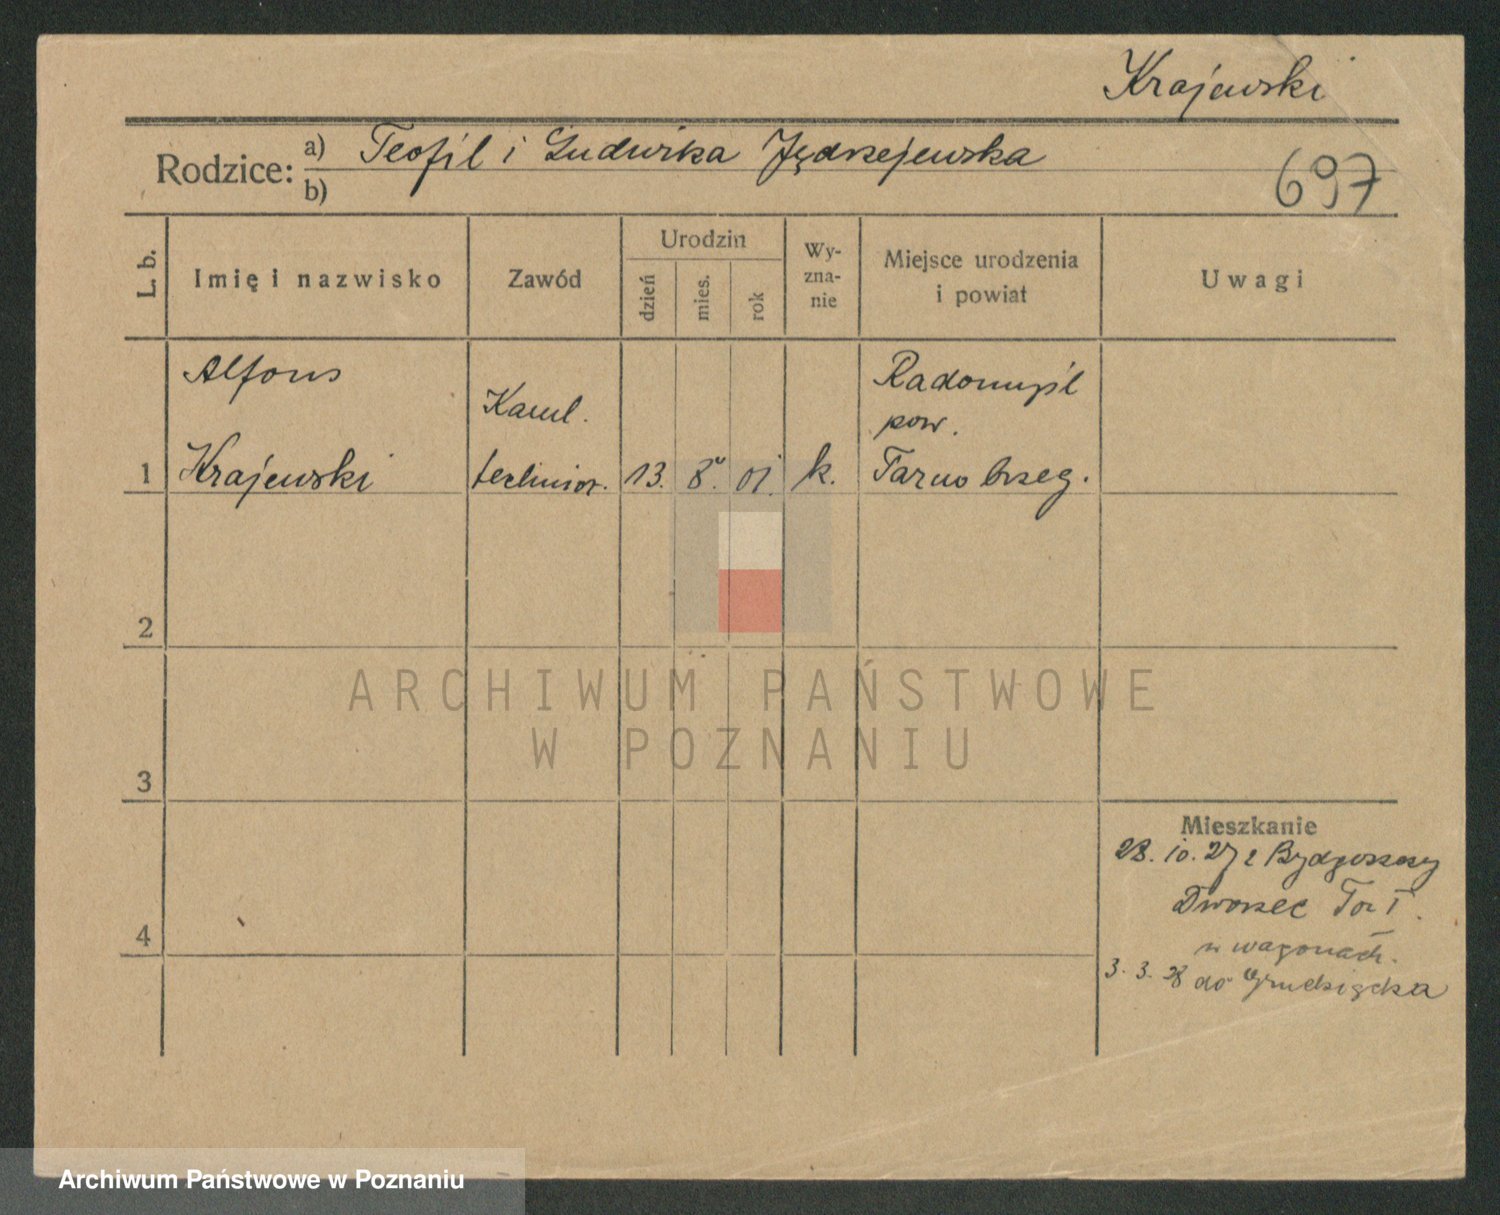 Krajewski
Rodzice: a) Teofil i Ludwika Jędrzejewska
b)
697
L. b.
Imię i nazwisko
Zawód
Urodzin
dzień
mies.
rok
Wy-
zna-
nie
Miejsce urodzenia
i powiat
Uwagi
Alfons
Krajewski
13. 8. 01. k.
Radomyśl
pow.
Tarnobrzeg.
1
2
3
4
ARCHIWUM PAŃSTWOWE
W POZNANIU
Mieszkanie
28. 10. 27 z Bydgoszczy
Dworzec Tor I.
w wagonach.
3. 3. 28 do Grudziądza
Archiwum Państwowe w Poznaniu